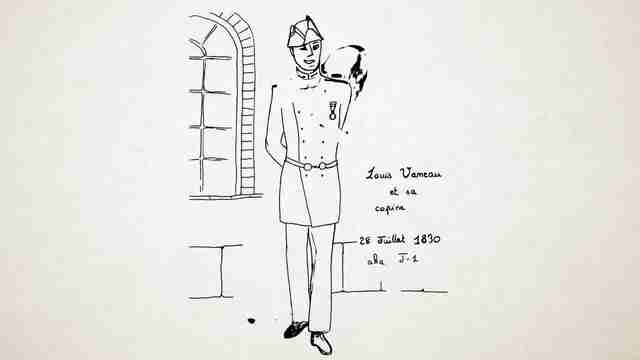 Louis Vaneau
et sa
copine
28 Juillet 1830
aka J-1